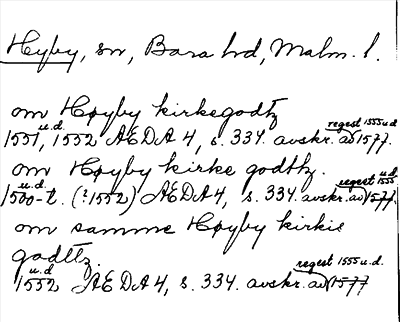 Hyby, sn, Bara hd, Malm. l.
om Høyby kirkegodtz
regest 1555 u.d.
u.d.
1551, 1552 ÆDA 4, s. 334. avskr. av 1577.
om Høyby kirke godthz.
u.d. regest 1555 u.d.
1500-t. (?1552) ÆDA 4, s. 334. avskr. av 1577.
om samme Høyby kirkie
godttz.
u.d. regest 1555 u.d.
1552 ÆDA 4, s. 334. avskr. av 1577